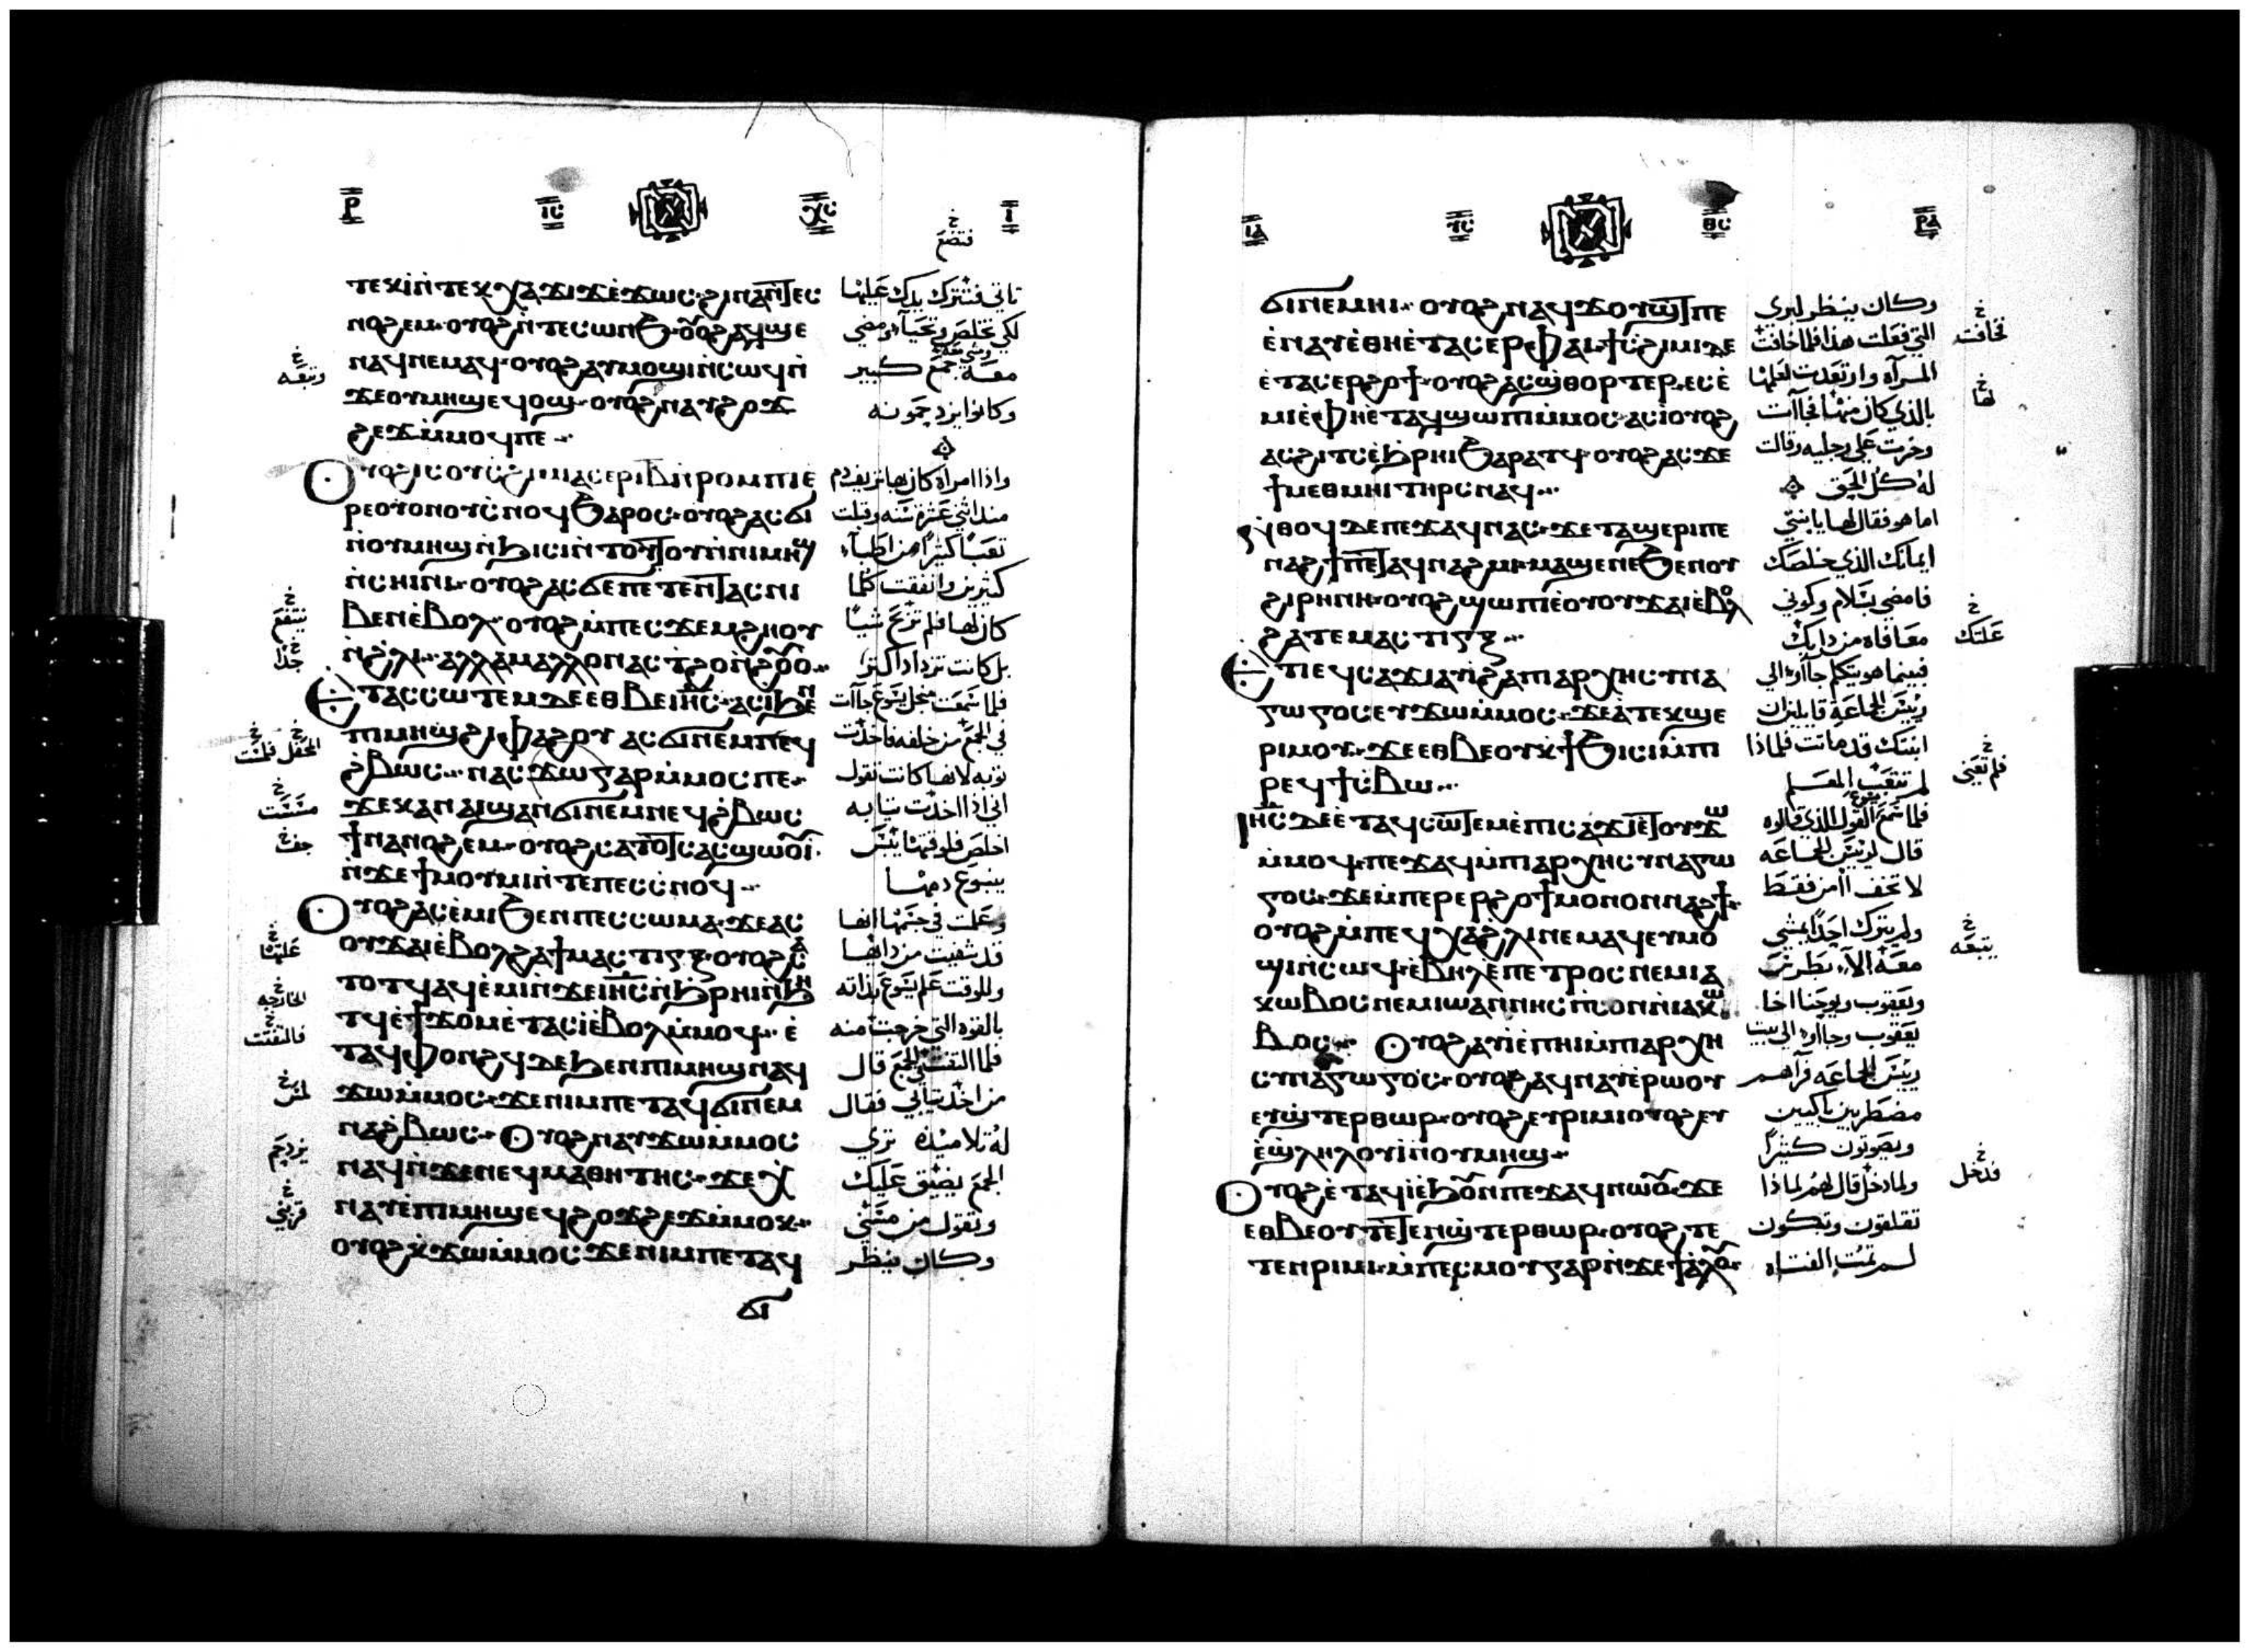 ⲣ ⲓⲥ ⲭⲥ ⲓ
ⲧⲉⲕⲓ̀ⲛ̀ⲧⲉⲕⲭⲁϫⲓϫⲉ̀ϫⲱⲥ ϩⲓⲛⲁⲛ̄ⲧⲉⲥ
ⲛⲟϩⲉⲙ ⲟⲩⲟϩⲛ̀ⲧⲉⲥⲱⲛϧ ⲟⲩⲟϩⲁϥϣⲉ
ⲛⲁϥⲛⲉⲙⲁϥ ⲟⲩⲟϩⲁⲩⲙⲟϣⲓⲛ̀ⲥⲱϥⲛ̀
ϫⲉⲟⲩⲙⲏϣⲉϥⲟϣ ⲟⲩⲟϩⲛⲁⲩϩⲟϫ
ϩⲉϫⲙ̀ⲙⲟϥⲡⲉ
ⲟⲩⲟϩⲓⲥⲟⲩⲥϩⲓⲙⲓⲁⲥⲉⲣⲓⲃⲛ̀ⲣⲟⲙⲡⲓⲉ̀
ⲣⲉⲟⲩⲟⲛⲟⲩⲥ̀ⲛⲟϥϧⲁⲣⲟⲥ ⲟⲩⲟϩⲁⲥϭⲓ
ⲛ̀ⲟⲩⲙⲏϣⲛ̀ϧⲓⲥⲓⲛ̀ⲧⲟⲧⲟⲩⲛ̀ⲛⲓⲙⲏϣ
ⲛ̀ⲥⲏⲓⲛⲓ ⲟⲩⲟϩⲁⲥϭⲉⲡⲉⲧⲉⲛⲧⲁⲥⲛⲓ
ⲃⲉⲛⲉ̀ⲃⲟⲗ ⲟⲩⲟϩⲙ̀ⲡⲉⲥϫⲉⲙϩⲏⲟⲩ
ⲛ̀ϩⲗⲓ ⲁⲗⲗⲁⲙⲁⲗⲗⲟⲛⲁⲥϯϩⲟⲛ̀ϩⲟⲩⲟ
ⲉⲧⲁⲥⲥⲱⲧⲉⲙⲇⲉⲉⲑⲃⲉⲓⲏⲥ ⲁⲥⲓ̀ϧⲉⲛ
ⲡⲓⲙⲏϣϩⲓⲫⲁϩⲟⲩ ⲁⲥϭⲓⲛⲉⲙⲡⲉϥ
ϩ̀ⲃⲱⲥ ⲛⲁⲥϫⲱⲅⲁⲣⲙ̀ⲙⲟⲥⲡⲉ
ϫⲉⲕⲁⲛⲁⲓϣⲁⲛϭⲓⲛⲉⲙⲛⲉϥϩ̀ⲃⲱⲥ
ϯⲛⲁⲛⲟϩⲉⲙ ⲟⲩⲟϩⲥⲁⲧⲟⲧⲥⲁⲥϣⲱⲟⲩⲓ̀
ⲛ̀ϫⲉϯⲙⲟⲩⲙⲓⲛ̀ⲧⲉⲡⲉⲥⲥ̀ⲛⲟϥ
ⲟⲩⲟϩⲁⲥⲉ̀ⲙⲓϧⲉⲛⲡⲉⲥⲥⲱⲙⲁ ϫⲉⲁⲥ
ⲟⲩϫⲁⲓⲉ̀ⲃⲟⲗϩⲁϯⲙⲁⲥⲧⲓⲅⲝ ⲟⲩⲟϩⲥⲁ
ⲧⲟⲧϥⲁϥⲉ̀ⲙⲓⲛ̀ϫⲉⲓⲏⲥⲛ̀ϧⲣⲏⲓⲛ̀ϧⲏ
ⲧϥⲉ̀ϯϫⲟⲙⲉ̀ⲧⲁⲥⲓ̀ⲉ̀ⲃⲟⲗⲙ̀ⲙⲟϥ ⲉ̀
ⲧⲁϥⲫⲟⲛϩϥⲇⲉϧⲉⲛⲡⲓⲙⲏϣⲛⲁϥ
ϫⲱⲙ̀ⲙⲟⲥ ϫⲉⲛⲓⲙⲡⲉⲧⲁϥϭⲓⲛⲉⲙ
ⲛⲁϩ̀ⲃⲱⲥ ⲟⲩⲟϩⲛⲁⲩϫⲱⲙ̀ⲙⲟⲥ
ⲛⲁϥⲛ̀ϫⲉⲛⲉϥⲙⲁⲑⲏⲧⲏⲥ ϫⲉⲭ̀
ⲛⲁⲩⲉ̀ⲡⲓⲙⲏϣⲉϥϩⲟϫϩⲉϫⲙ̀ⲙⲟⲕ
ⲟⲩⲟϩⲕ̀ϫⲱⲙ̀ⲙⲟⲥ ϫⲉⲛⲓⲙⲡⲉⲧⲁϥ
ϭⲓ
فتضع
تاتي فتترك يدك عليها
لكي تخلص وتحيآ ومضي
معه جمع كبير
وكانوا يزدحمونه
واذا امراة كان بها نزيف دم
منذ اثني عشرة سنه وقبلت
تعبًا كثيرًا من اطبآء
كثيرين وانفقت كلما
كان لها فلم تربح شيًا
بل كانت تزداد اكثر
فلما سمعت من اجل يسوع جآات
في الجمع من خلفه فاخذت
ثوبه لانها كانت تقول
اني اذا اخذت ثيابه
اخلص فلوقتها يبس
ينبوع دمها
وعلمت في جسمها انها
قد شفيت من دائها
وللوقت علم يسوع بذاته
بالقوه التي خرجت منه
فلما التفت في الجمع قال
من اخذ ثيابي فقال
له تلاميذه تري
الجمع يضيق عليك
وتقول من مسني
وكان ينظر
وتبعه
ينتفع
جدًا
المحفل فلمست
مسست
جف
علتها
الخارجه
فالتفت
لمس
يزدحم
قربني
ⲓⲁ ⲩⲥ ⲑⲥ ⲣⲁ
ϭⲓⲛⲉⲙⲏⲓ ⲟⲩⲟϩⲛⲁϥϫⲟⲩϣⲧⲡⲉ
ⲉ̀ⲛⲁⲩⲉ̀ⲑⲏⲉ̀ⲧⲁⲥⲉⲣⲫⲁⲓ ϯⲥϩⲓⲙⲓⲇⲉ
ⲉ̀ⲧⲁⲥⲉⲣϩⲟϯ ⲟⲩⲟϩⲁⲥϣ̀ⲑⲟⲣⲧⲉⲣ ⲉⲥⲉ̀
ⲙⲓⲉ̀ⲫⲏⲉ̀ⲧⲁϥϣⲱⲡⲓⲙ̀ⲙⲟⲥ ⲁⲥⲓ̀ⲟⲩⲟϩ
ⲁⲥϩⲓⲧⲥⲉ̀ϧⲣⲏⲓϧⲁⲣⲁⲧϥ ⲟⲩⲟϩⲁⲥϫⲉ
ϯⲙⲉⲑⲙⲏⲓⲧⲏⲣⲥⲛⲁϥ
ⲛ̀ⲑⲟϥⲇⲉⲡⲉϫⲁϥⲛⲁⲥ ϫⲉⲧⲁϣⲉⲣⲓⲡⲉ
ⲛⲁϩϯⲡⲉⲧⲁϥⲛⲁϩⲙⲓ ⲙⲁϣⲉⲛⲉϧⲉⲛⲟⲩ
ϩⲓⲣⲏⲛⲏ ⲟⲩⲟϩϣⲱⲡⲓⲉⲟⲩⲟⲩϫⲁⲓⲉ̀ⲃⲟⲗ
ϩⲁⲧⲉⲙⲁⲥⲧⲓⲅⲝ
ⲉⲧⲓⲉϥⲥⲁϫⲓⲁⲩⲓ̀ϩⲁⲡⲓⲁⲣⲭⲏⲥⲩⲛⲁ
ⲅⲱⲅⲟⲥⲉⲩϫⲱⲙ̀ⲙⲟⲥ ϫⲉⲁ̀ⲧⲉⲕϣⲉ
ⲣⲓⲙⲟⲩ ϫⲉⲉⲑⲃⲉⲟⲩⲕ̀ϯϧⲓⲥⲓⲙ̀ⲡⲓ
ⲣⲉϥϯⲥ̀ⲃⲱ
ⲓⲏⲥⲇⲉⲉ̀ⲧⲁϥⲥⲱⲧⲉⲙⲉ̀ⲡⲓⲥⲁϫⲓⲉ̀ⲧⲟⲩϫⲱ
ⲙ̀ⲙⲟϥ ⲡⲉϫⲁϥⲙ̀ⲡⲓⲁⲣⲭⲏⲥⲩⲛⲁⲅⲱ
ⲅⲟⲥ ϫⲉⲙ̀ⲡⲉⲣⲉⲣϩⲟϯⲙⲟⲛⲟⲛⲛⲁϩϯ
ⲟⲩⲟϩⲙ̀ⲡⲉϥⲭⲁϩ̀ⲗⲓⲛⲉⲙⲁϥⲉⲩⲙⲟ
ϣⲓⲛ̀ⲥⲱϥ ⲉ̀ⲃⲏⲗⲉ̀ⲡⲉⲧⲣⲟⲥⲛⲉⲙⲓⲁ
ⲕⲱⲃⲟⲥⲛⲉⲙⲓⲱⲁⲛⲛⲏⲥⲡ̀ⲥⲟⲛⲛ̀ⲓⲁⲕⲱ
ⲃⲟⲥ ⲟⲩⲟϩⲁⲩⲓ̀ⲉ̀ⲡⲏⲓⲙ̀ⲡⲓⲁⲣⲭⲏ
ⲥⲩⲛⲁⲅⲱⲅⲟⲥ ⲟⲩⲟϩⲁϥⲛⲁⲩⲉ̀ⲣⲱⲟⲩ
ⲉⲩϣ̀ⲧⲉⲣⲑⲱⲣ ⲟⲩⲟϩⲉⲩⲣⲓⲙⲓⲟⲩⲟϩⲉⲩ
ⲉ̀ϣⲗⲏⲗⲟⲩⲓ̀ⲛⲟⲩⲙⲏϣ
ⲟⲩⲟϩⲉ̀ⲧⲁϥⲓ̀ⲉ̀ϧⲟⲩⲛⲡⲉϫⲁϥⲛⲱⲟⲩ ϫⲉ
ⲉⲑⲃⲉⲟⲩⲧⲉⲧⲉⲛϣ̀ⲧⲉⲣⲑⲱⲣ ⲟⲩⲟϩⲧⲉ
ⲧⲉⲛⲣⲓⲙⲓ ⲙ̀ⲡⲉⲥⲙⲟⲩⲅⲁⲣⲛ̀ϫⲉϯⲁ̀ⲗⲟⲩ
وكان ينظر ليري
التي فعلت هذا فلما خافت
المراه وارتعدت لعلمها
بالذي كان منها فجآات
وخرت علي رجليه وقالت
له كل الحق
اما هو فقال لها يا بنتي
ايمانك الذي خلصك
فامضي بسلام وكوني
معافاه من دايك
فبينما هو يتكلم جاآوا الي
رييس الجماعه قايلين ان
ابنتك قد ماتت فلماذا
لم تتعب المعلم
فلما سمع يسوع القول الذي قالوه
قال لرييس الجماعه
لا تخف اامن فقط
ولم يترك احدًا يمشي
معه الاّ بطرس
ويعقوب ويوحنا اخا
يعقوب وجاآوا الي بيت
رييس الجماعه فراهم
مضطربين باكيين
ويصوتون كثيرًا
ولما دخل قال لهم لماذا
تقلقون وتبكون
لم تمت الفتاه
فخافت
لها
علتك
فلم تعني
يتبعه
فدخل